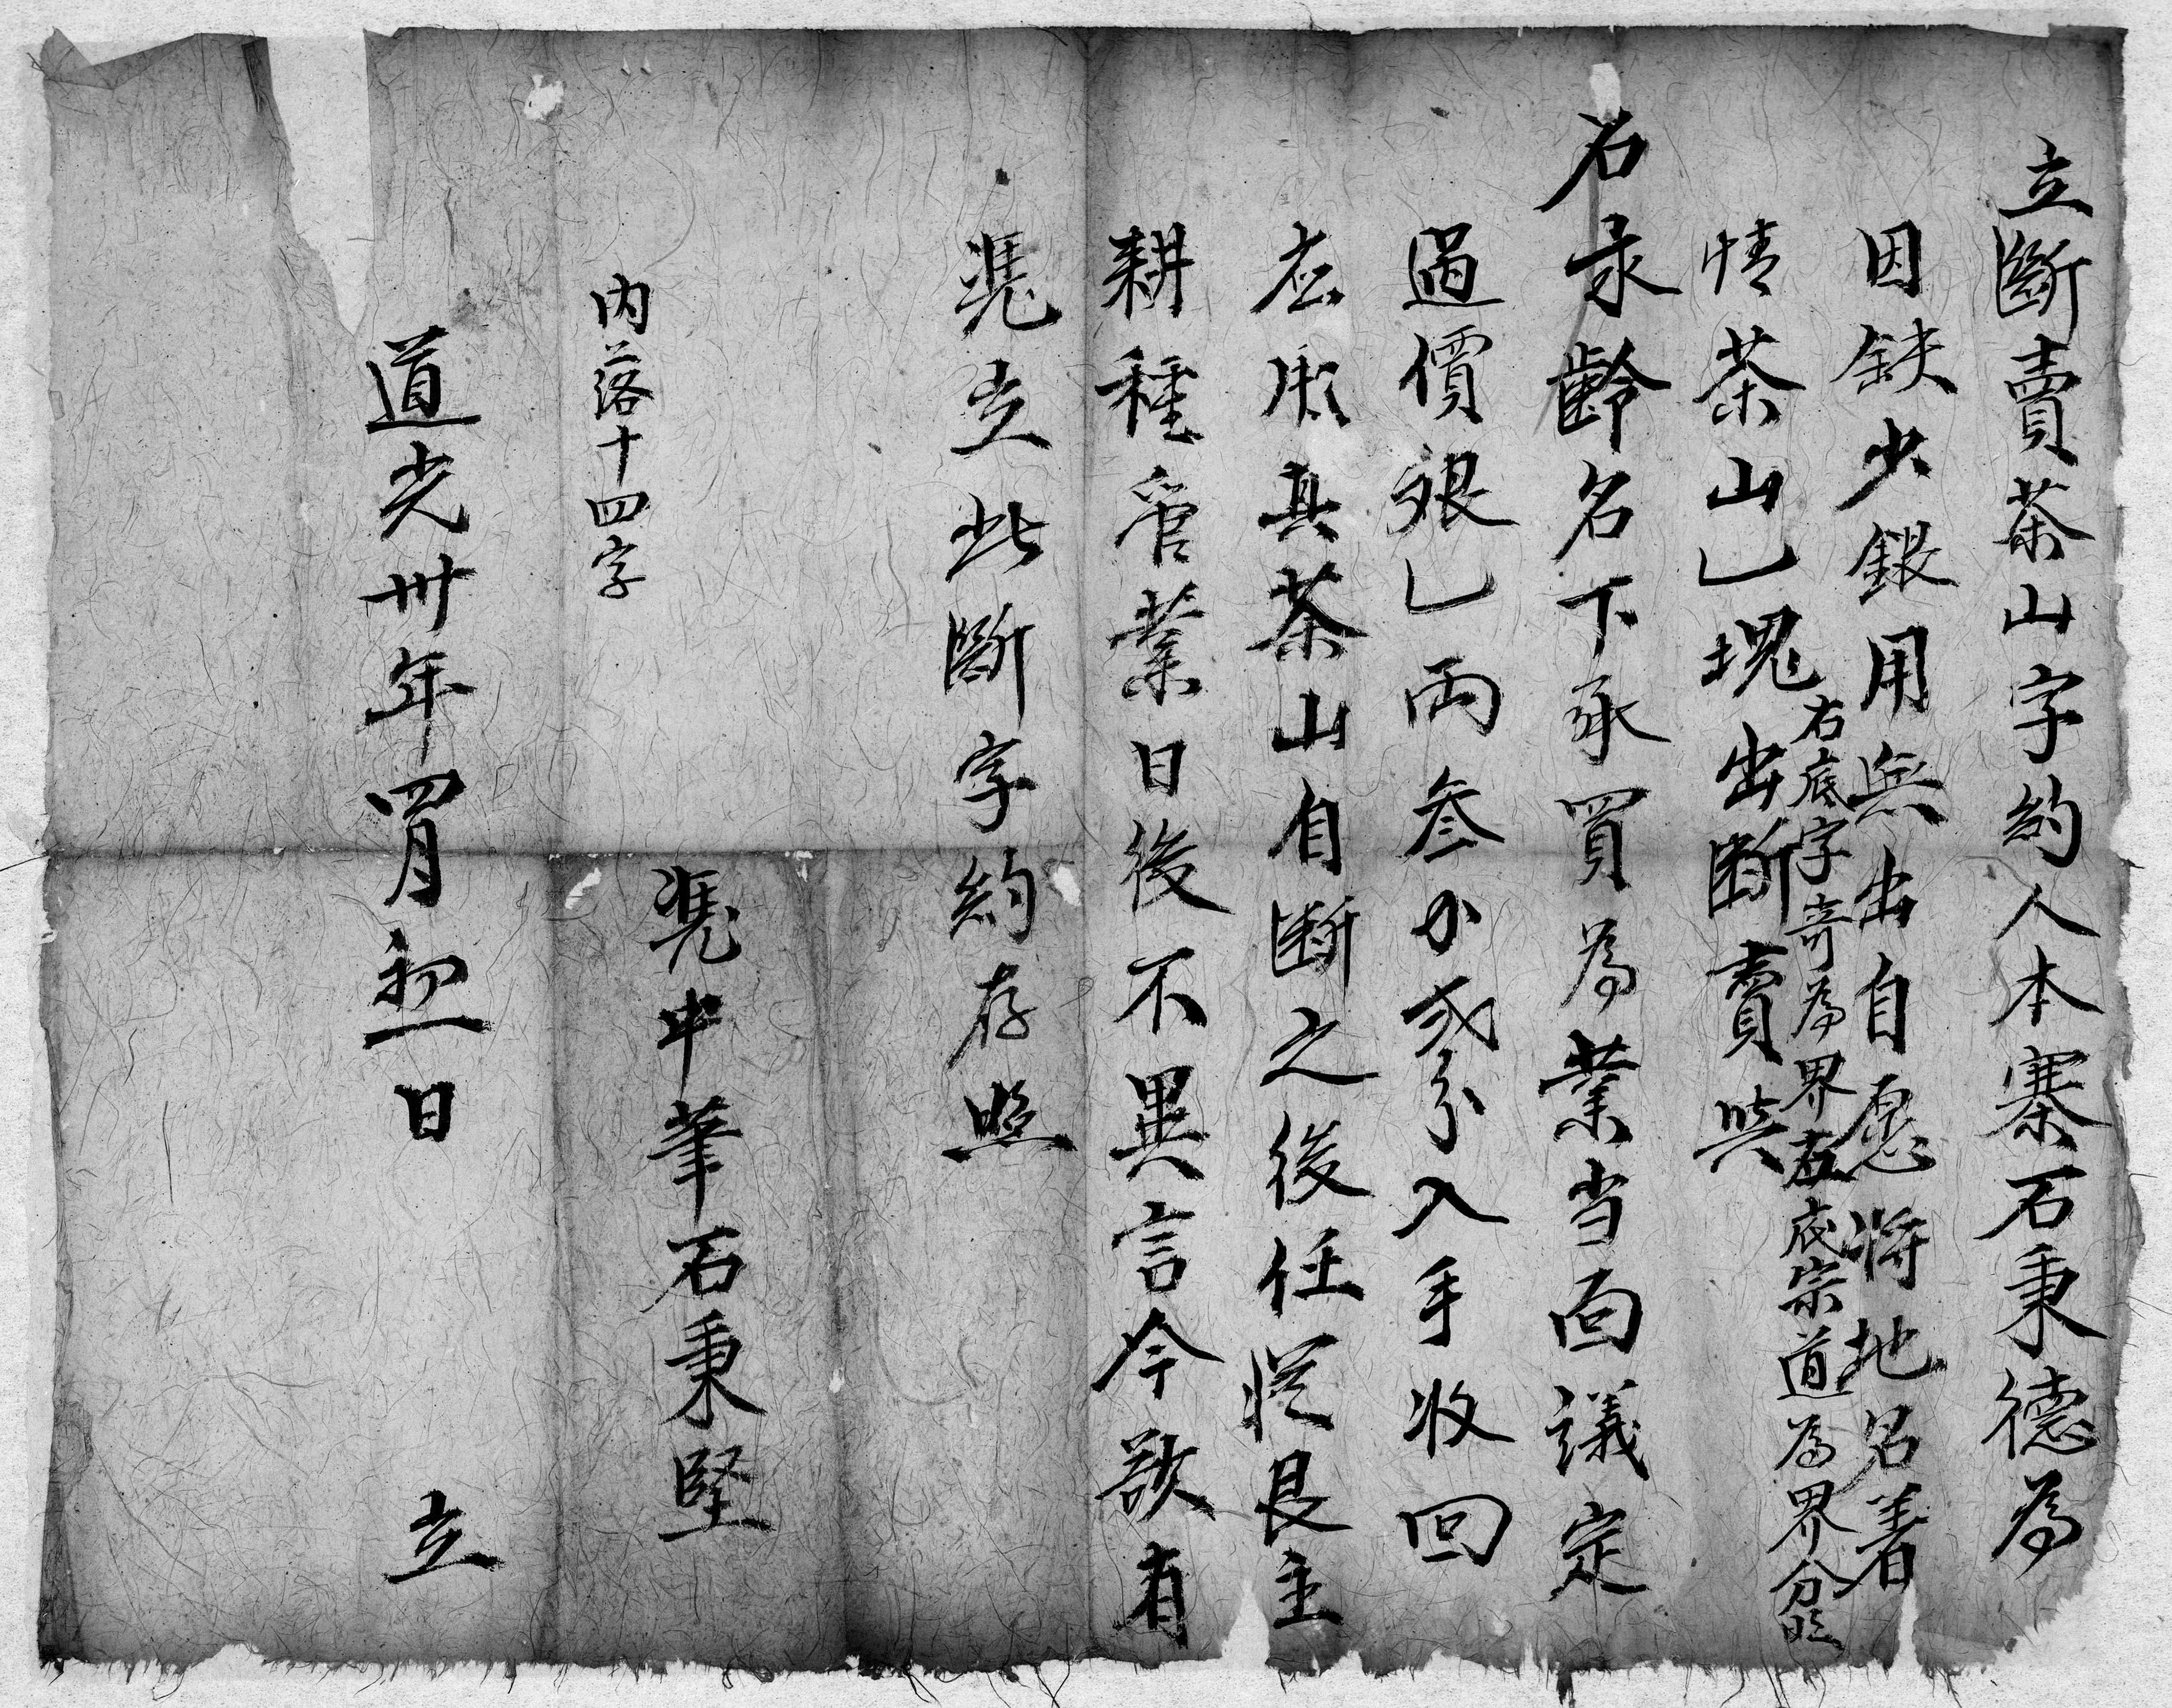 立斷賣茶山字約人本寨石秉德為
因缺少銀用無出自愿將地名着
右底字寄為界左底宗道為界分明
情茶山乚塊出断賣與
石录齡名下承買為業当面議定
過價銀乚両叁分弍厘入手收回
應用其茶山自断之後任從艮主
耕種管業日後不異言今欲有
憑立此斷字約存照
内落十四字
憑中筆石秉堅
道光卅年四月初一日 立